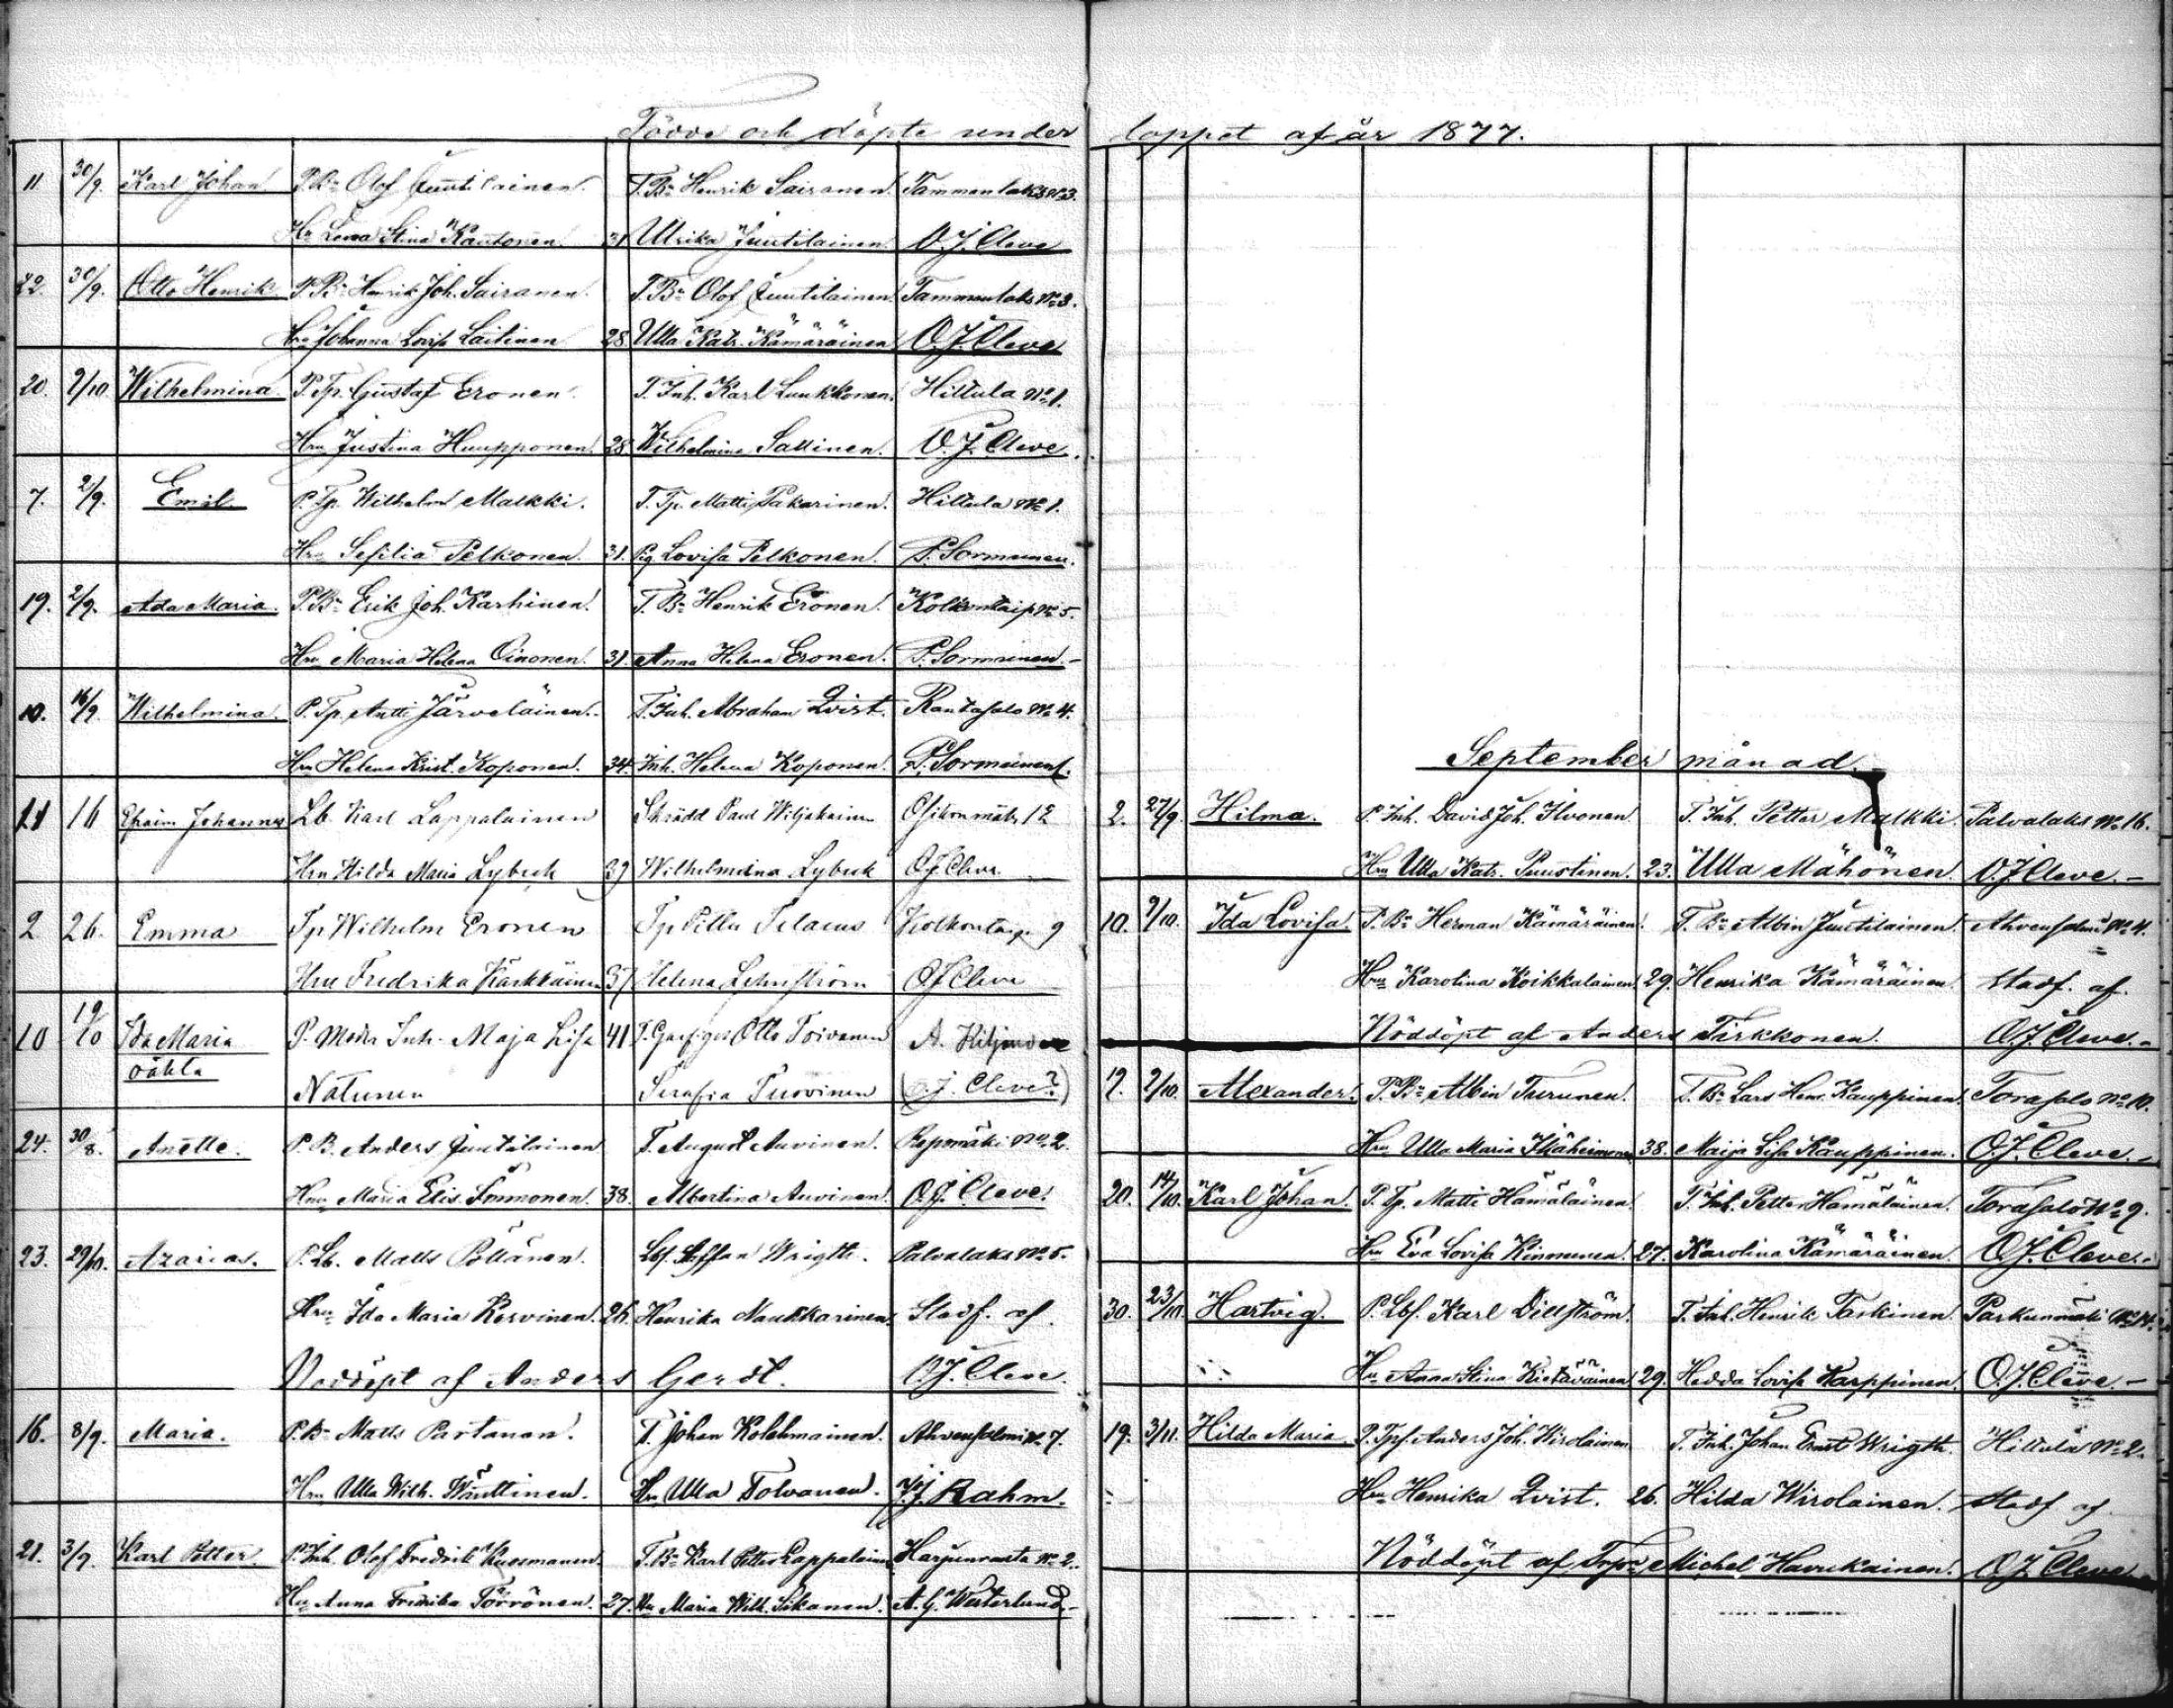 Födde och döpte under loppet af år 1877.
11. 30/9. Karl Johan P. Bn Olof Juutilainen. T. Bn Henrik Sairanen. Tammenlaks No 3.
Hu Lena Stina Kautonen. 31 Ulrika Juutilainen. O. J. Cleve
22. 30/9. Otto Henrik P. Bn Henrik Joh. Sairanen. T. Bn Olof Juutilainen Tammenlaks No 3.
Hru Johanna Lovisa Laitinen 28 Ulla Katr. Kämäräinen O. J. Cleve
20. 7/10 Wilhelmina P. Tp. Gustaf Eronen. T. Inh. Karl Luukkonen. Hiltula No 1.
Hru Justina Huupponen. 28 Wilhelmina Sallinen. O. J. Cleve.
7. 2/9. Emil P. Tp. Wilhelm Malkki. T. Tp. Matti Pakarinen. Hiltula No 1.
Hru Sefilia Pelkonen. 31. Pig Lovisa Pelkonen. P. Sormunen.
19. 2/9. Ada Maria. P. Bn Erik Joh. Karhinen. T. Bn Henrik Eronen. Kolkontaip. No 5.
Hru Maria Helena Oinonen. 31. Anna Helena Eronen. P. Sormunen. -
10. 16/9. Wilhelmina. P. Tp. Antti Järveläinen. T. Inh. Abraham Qvist. Rantasalo No 4.
Hru Helena Krist. Koponen. 34. Inh. Helena Koponen. P. Sormunen.
21 16 Efraim Johannes Lb. Karl Lappalainen Skrädd Paul Wiljakainen Osikonmäki 12
Hru Hilda Maria Lybeck 39 Wilhelmina Lybeck O J Cleve
2 26. Emma Tp Wilhelm Eronen Tp Pilla Kolkontaip. 9
Hru Fredrika Karkkäinen 37 Helena O J Cleve
10 19/10 Ida Maria P. Moder Inh. Maja Lisa 41 T. Otto Toivanen A.
oäkta Natunen Serafia Turvinen (O. J. Cleve?)
24. 30/8. Anette. P. B. Anders Juutilainen T. August Auvinen. Repomäki No 2.
Hru Maria Elis. Immonen. 38. Albertina Auvinen. O. J. Cleve.
23. 29/10. Azarias. P. Lb. Matts Pöllänen. Lbf. Staffan Wrigth. Palvalaks No 5.
Hru Ida Maria Korvinen. 26. Henrika Naukkarinen. Stadf. af
Nöddöpt af Anders Gerdt. O. J. Cleve.
16. 8/9. Maria. P. Bn Matts Partanen. T. Johan Kolehmainen. Ahvensalmi No 7.
Hru Ulla Wilh. Wäuttinen. Hru Ulla Tolvanen. J. J. Rahm.
21. 3/9. Karl Petter. P. Inh. Olof Fredrik Kuosmanen. T. Bn Karl Petter Lappalainen Harjunranta No 2.
Hu Anna Fredrika Törrönen. 27. Hu Maria Wilh. Sikanen. A. G. Westerlund.
September månad.
2. 27/9. Hilma. P. Inh. David Joh. Ilvonen T. Inh. Petter Malkki. Palvalaks No 16.
Hru Ulla Katr. Puustinen. 23. Ulla Mähönen. O. J. Cleve. -
10. 7/10. Ida Lovisa. P. Bn Herman Kämäräinen. T. Bn Albin Juutilainen. Ahvensalmi No 4.
Hru Karolina Koikkalainen 29. Henrika Kämäräinen. Stadf. af.
Nöddöpt af Anders Tirkkonen. O. J. Cleve. -
9. 7/10. Alexander. P. Bn Albin Turunen. T. Bn Lars Henr. Kauppinen. Torasalo No 10.
Hru Ulla Maria Ikäheimonen 38. Maija Lisa Kauppinen. O. J. Cleve. -
20. 14/10. Karl Johan. P. Tp. Matti Hämäläinen. T. Inh. Petter Hämäläinen. Torasalo No 9.
Hru Eva Lovisa Kinnunen. 27. Karolina Kämäräinen. O. J. Cleve. -
30. 23/10. Hartvig. P. Lbf. Karl Dillström. T. Inh. Henrik Taskinen. Parkunmäki No 14.
Hu Anna Stina Kietäväinen 29. Hedda Lovisa Karppinen. O. J. Cleve. -
19. 3/11. Hilda Maria. P. Tpf. Anders Joh. Wirolainen T. Inh. Johan Ernst Wrigth. Hiltula No 2.
Hru Henrika Qvist. 26. Hilda Wirolainen. Stadf af
Nöddöpt af Michel Havukainen. O. J. Cleve.